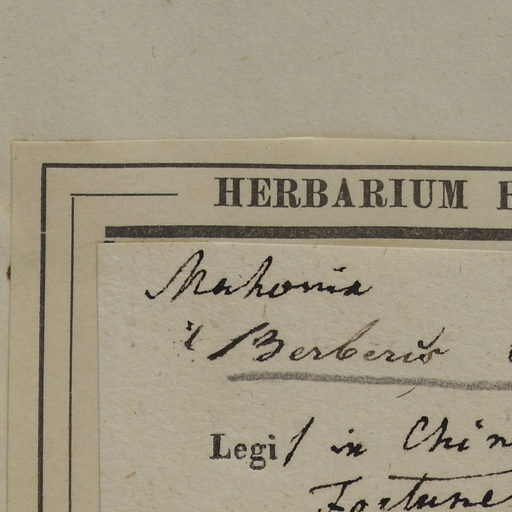 HERBARIUM
Mahonia
Berberis
Legit in Chin
Fortune